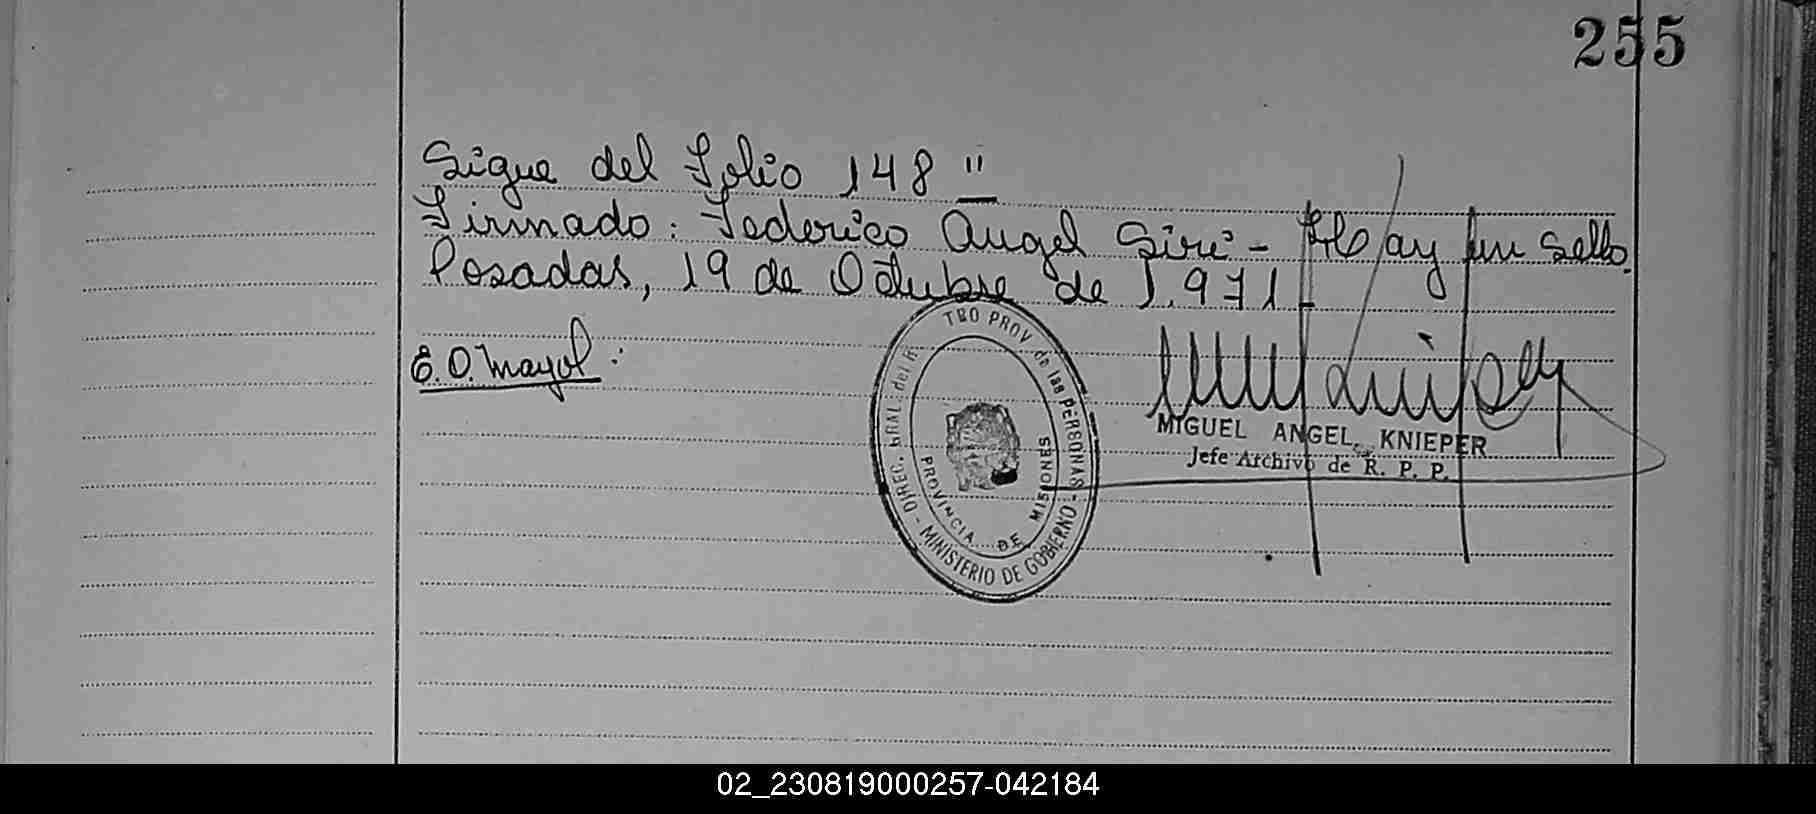 255
Sigue del Folio 148 "
Firmado: Federico Angel Siré - Hay un sello.
Posadas, 19 de Octubre de 1.971 -
E. O. Mayol:
DIREC. GRAL. del R TRO PROV de las PERSONAS - MINISTERIO DE GOBIERNO -
PROVINCIA DE MISIONES
MIGUEL ANGEL KNIEPER
Jefe Archivo de R. P. P.
02_230819000257-042184